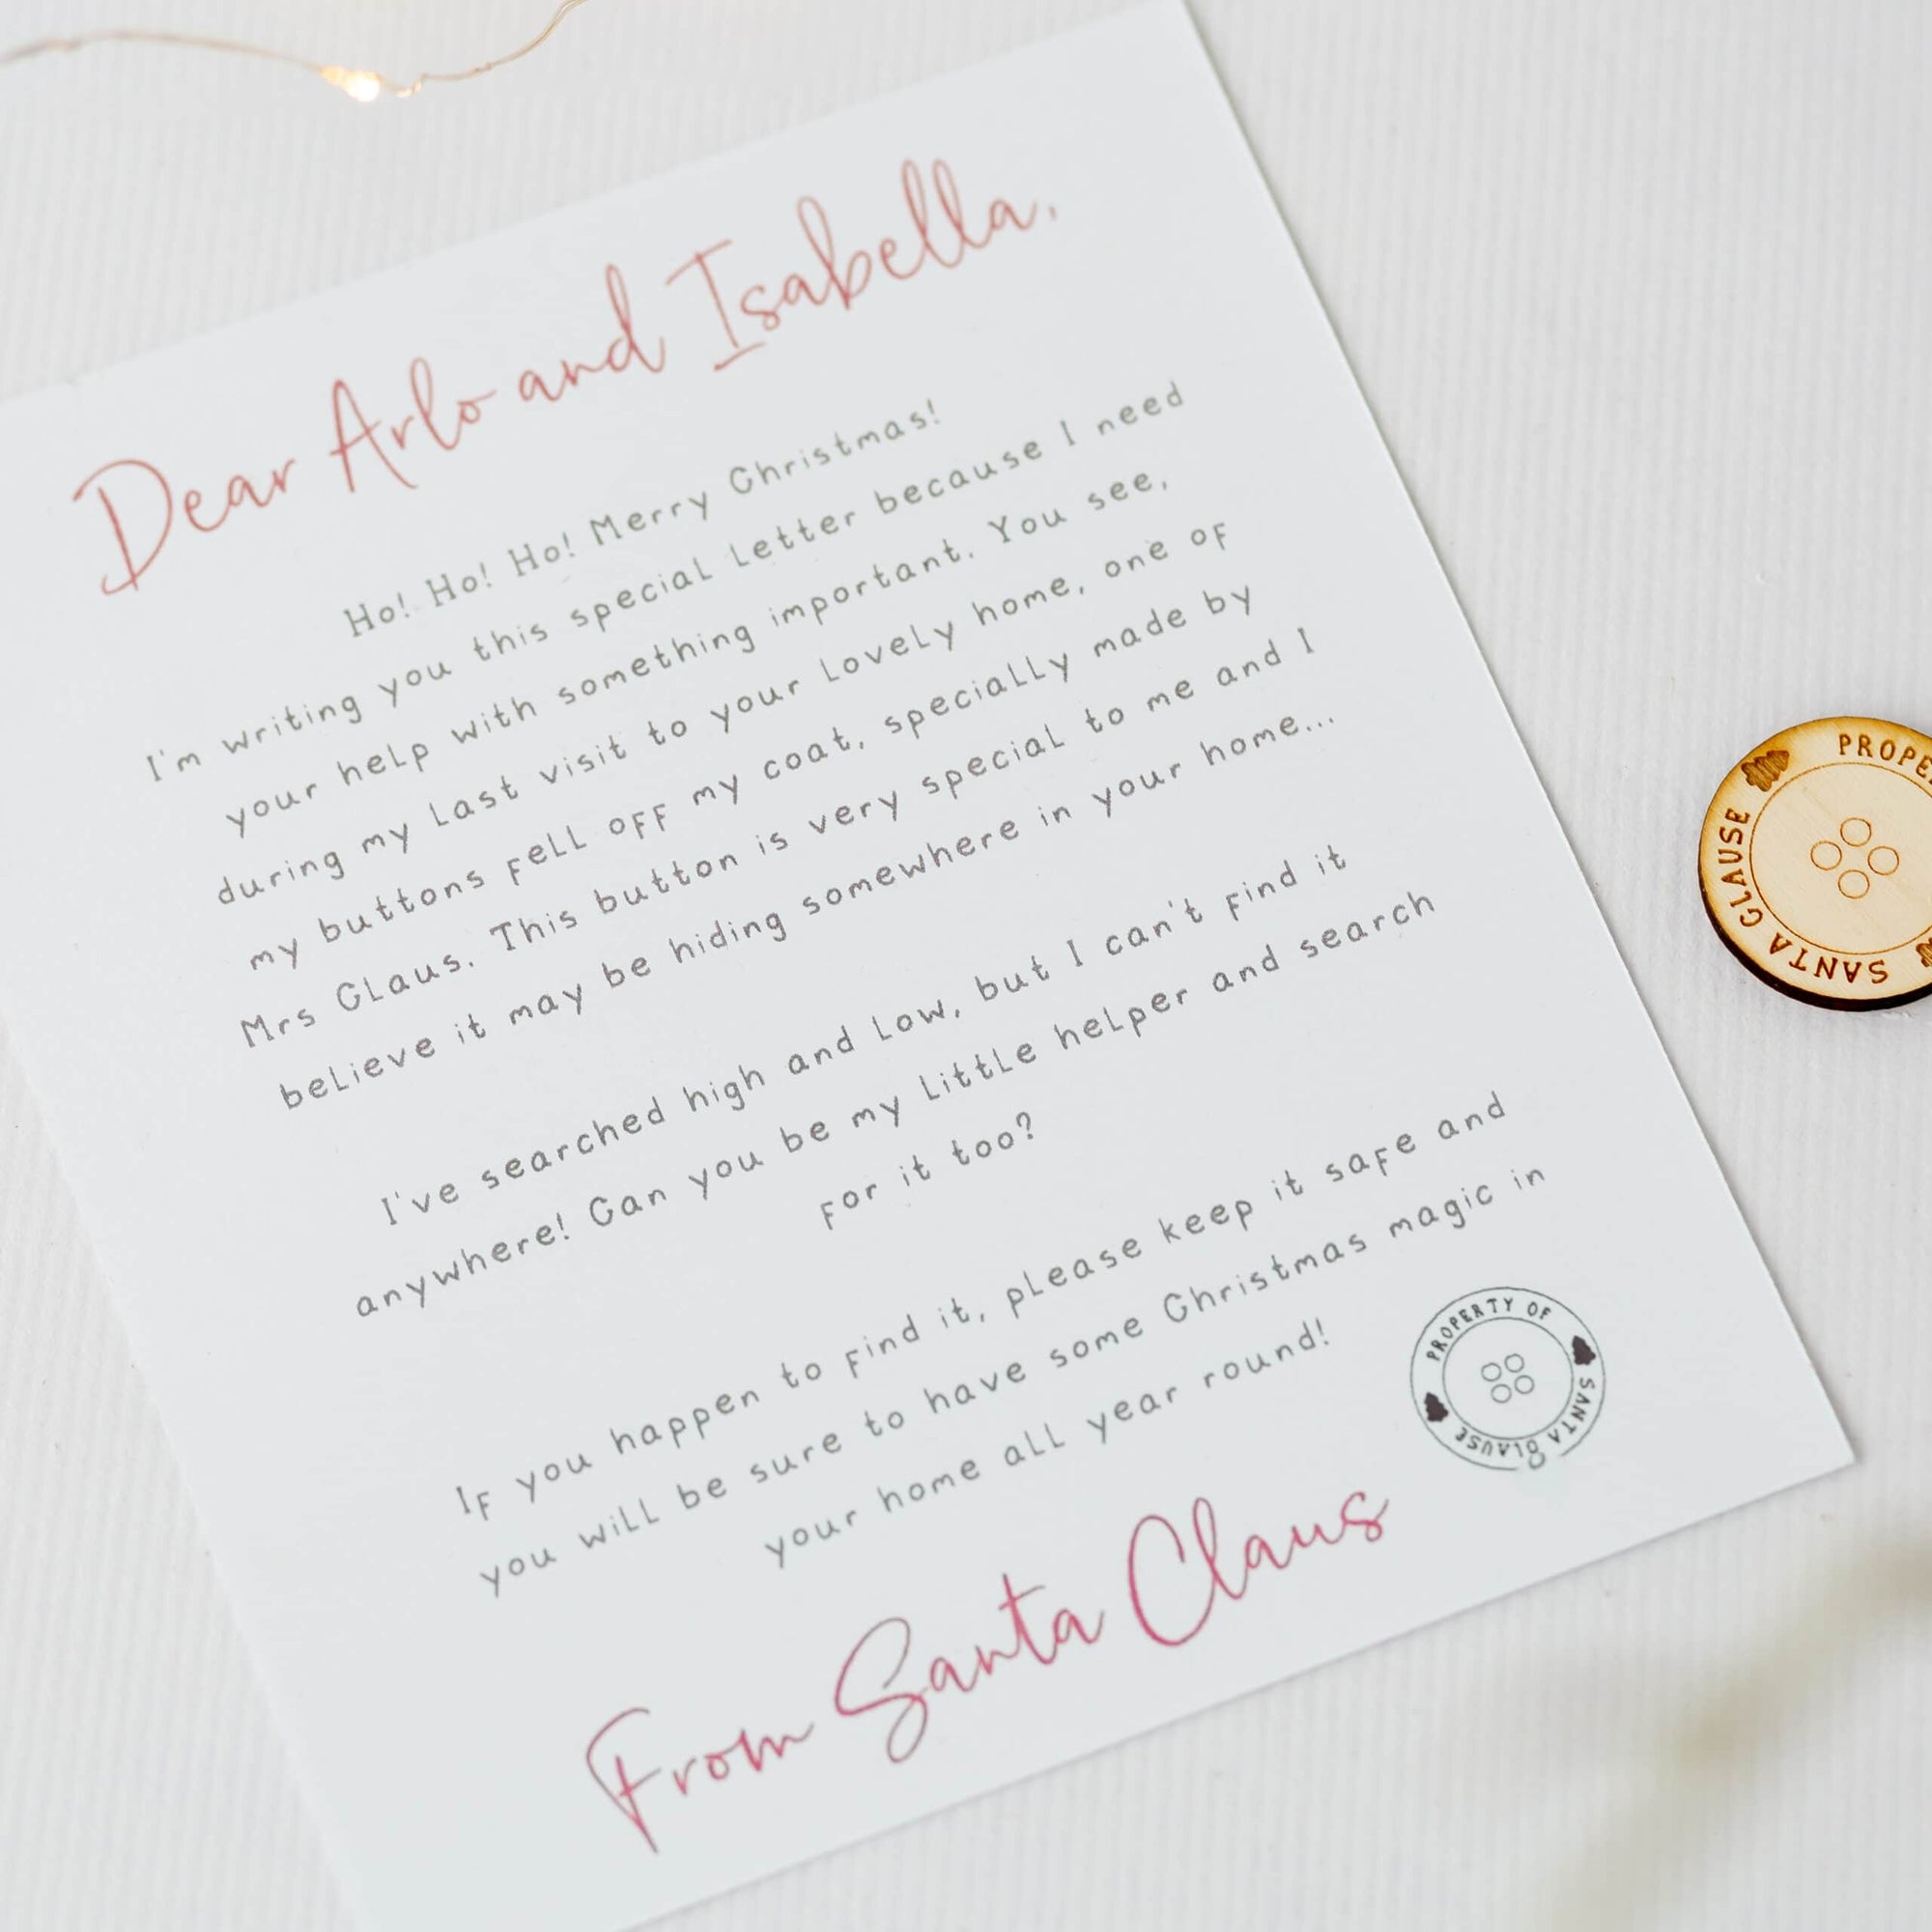 Dear Arlo and Isabella,
Ho! Ho! Ho! Merry Christmas!
I'm writing you this special letter because I need
your help with something important. You see,
during my last visit to your lovely home, one of
my buttons fell off my coat, specially made by
Mrs Claus. This button is very special to me and I
believe it may be hiding somewhere in your home...
I've searched high and low, but I can't find it
anywhere! Can you be my little helper and search
for it too?
If you happen to find it, please keep it safe and
you will be sure to have some Christmas magic in
your home all year round!
PROPERTY OF
SANTA CLAUSE
From Santa Claus
PROPE
SANTA CLAUSE